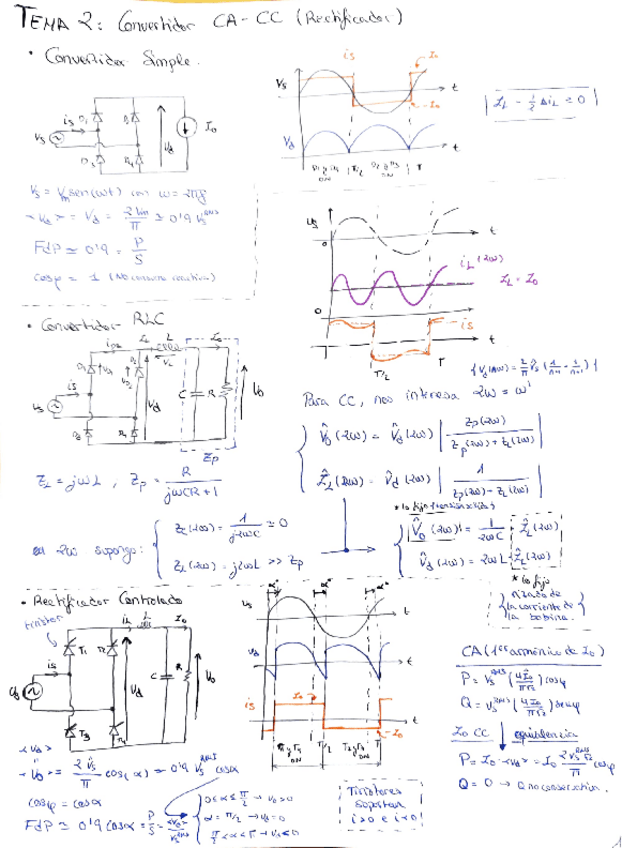 TEMA 2: Convertidor CA-CC (Rectificador)
• Convertidor Simple.
is
D1
D2
Vs
D3
D4
Vd
Io
is
Io
Vs
t
-Io
Vd
t
T/2
T
ON
ON
IL - 1/2 ΔiL ≥ 0
Vs = Vm sen(ωt) con ω = 2πf
<Vd> = Vd = 2Vm/π ≃ 0'9 Vs^RMS
FdP ≃ 0'9 = P/S
cosφ = 1 (No consume reactiva)
Vs
0
t
iL (2ω)
IL = Io
0
is
T/2
T
t
• Convertidor RLC
is
L
Io
VL
Vs
Vd
C
R
Vo
Zp
ZL = jωL , Zp = R/(jωCR+1)
Para CC, nos interesa 2ω = ω'
V̂o(2ω) = V̂d(2ω) | Zp(2ω) / (Zp(2ω) + ZL(2ω)) |
ÎL(2ω) = V̂d(2ω) | 1 / (Zp(2ω) - ZL(2ω)) |
en 2ω supongo:
Zc(2ω) = 1/(j2ωC) ≃ 0
ZL(2ω) = j2ωL >> Zp
V̂o(2ω) = 1/(2ωC) · ÎL(2ω)
V̂d(2ω) = 2ωL · ÎL(2ω)
* lo fijo
rizado de
la corriente de
la bobina.
• Rectificador Controlado
tiristor
T1
T2
T3
T4
is
iL
L
Io
Vd
C
R
Vo
Vs
α
t
Vd
t
is
Io
-Io
T1 y T4
ON
T/2
T2 y T3
ON
T
<Vd>
<Vo> = 2V̂s/π cos(α) ≃ 0'9 Vs^RMS cosα
cosφ = cosα
FdP ≃ 0'9 cosα = P/S
0 ≤ α ≤ π/2 → Vo > 0
α = π/2 → Vo = 0
π/2 < α ≤ π → Vo < 0
Tiristores
soportan
i>0 e i<0
CA (1er armónico de Io)
P = Vs^RMS (4Io/π√2) cosφ
Q = Vs^RMS (4Io/π√2) senφ
Io CC
equivalencia
P = Io · <Vo> = Io 2Vs^RMS√2/π cosφ
Q = 0 → Q no conservativa.